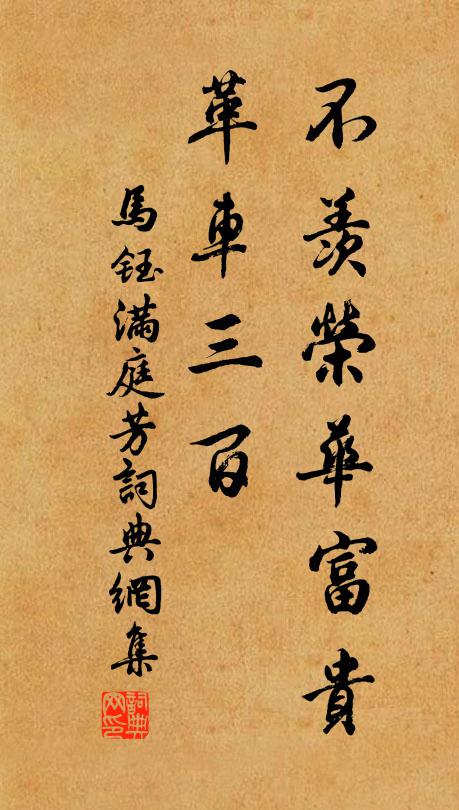 不羨榮華富貴
革車三百
馬鈺滿庭芳詞典網集
詞典
网印